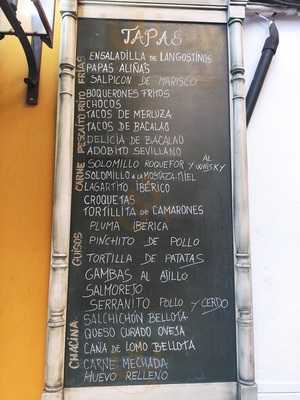 TAPAS
FRÍAS
ENSALADILLA DE LANGOSTINOS
PAPAS ALIÑAS
SALPICON DE MARISCO
PESCAÍTO FRITO
BOQUERONES FRITOS
CHOCOS
TACOS DE MERLUZA
TACOS DE BACALAO
DELICIA DE BACALAO
ADOBITO SEVILLANO
CARNE
SOLOMILLO ROQUEFOR Y AL WHISKY
SOLOMILLO A LA MOSTAZA-MIEL
LAGARTITO IBÉRICO
CROQUETAS
TORTILLITA DE CAMARONES
PLUMA IBÉRICA
GUISOS
PINCHITO DE POLLO
TORTILLA DE PATATAS
GAMBAS AL AJILLO
SALMOREJO
SERRANITO POLLO Y CERDO
CHACINA
SALCHICHÓN BELLOTA
QUESO CURADO OVEJA
CAÑA DE LOMO BELLOTA
CARNE MECHADA
HUEVO RELLENO